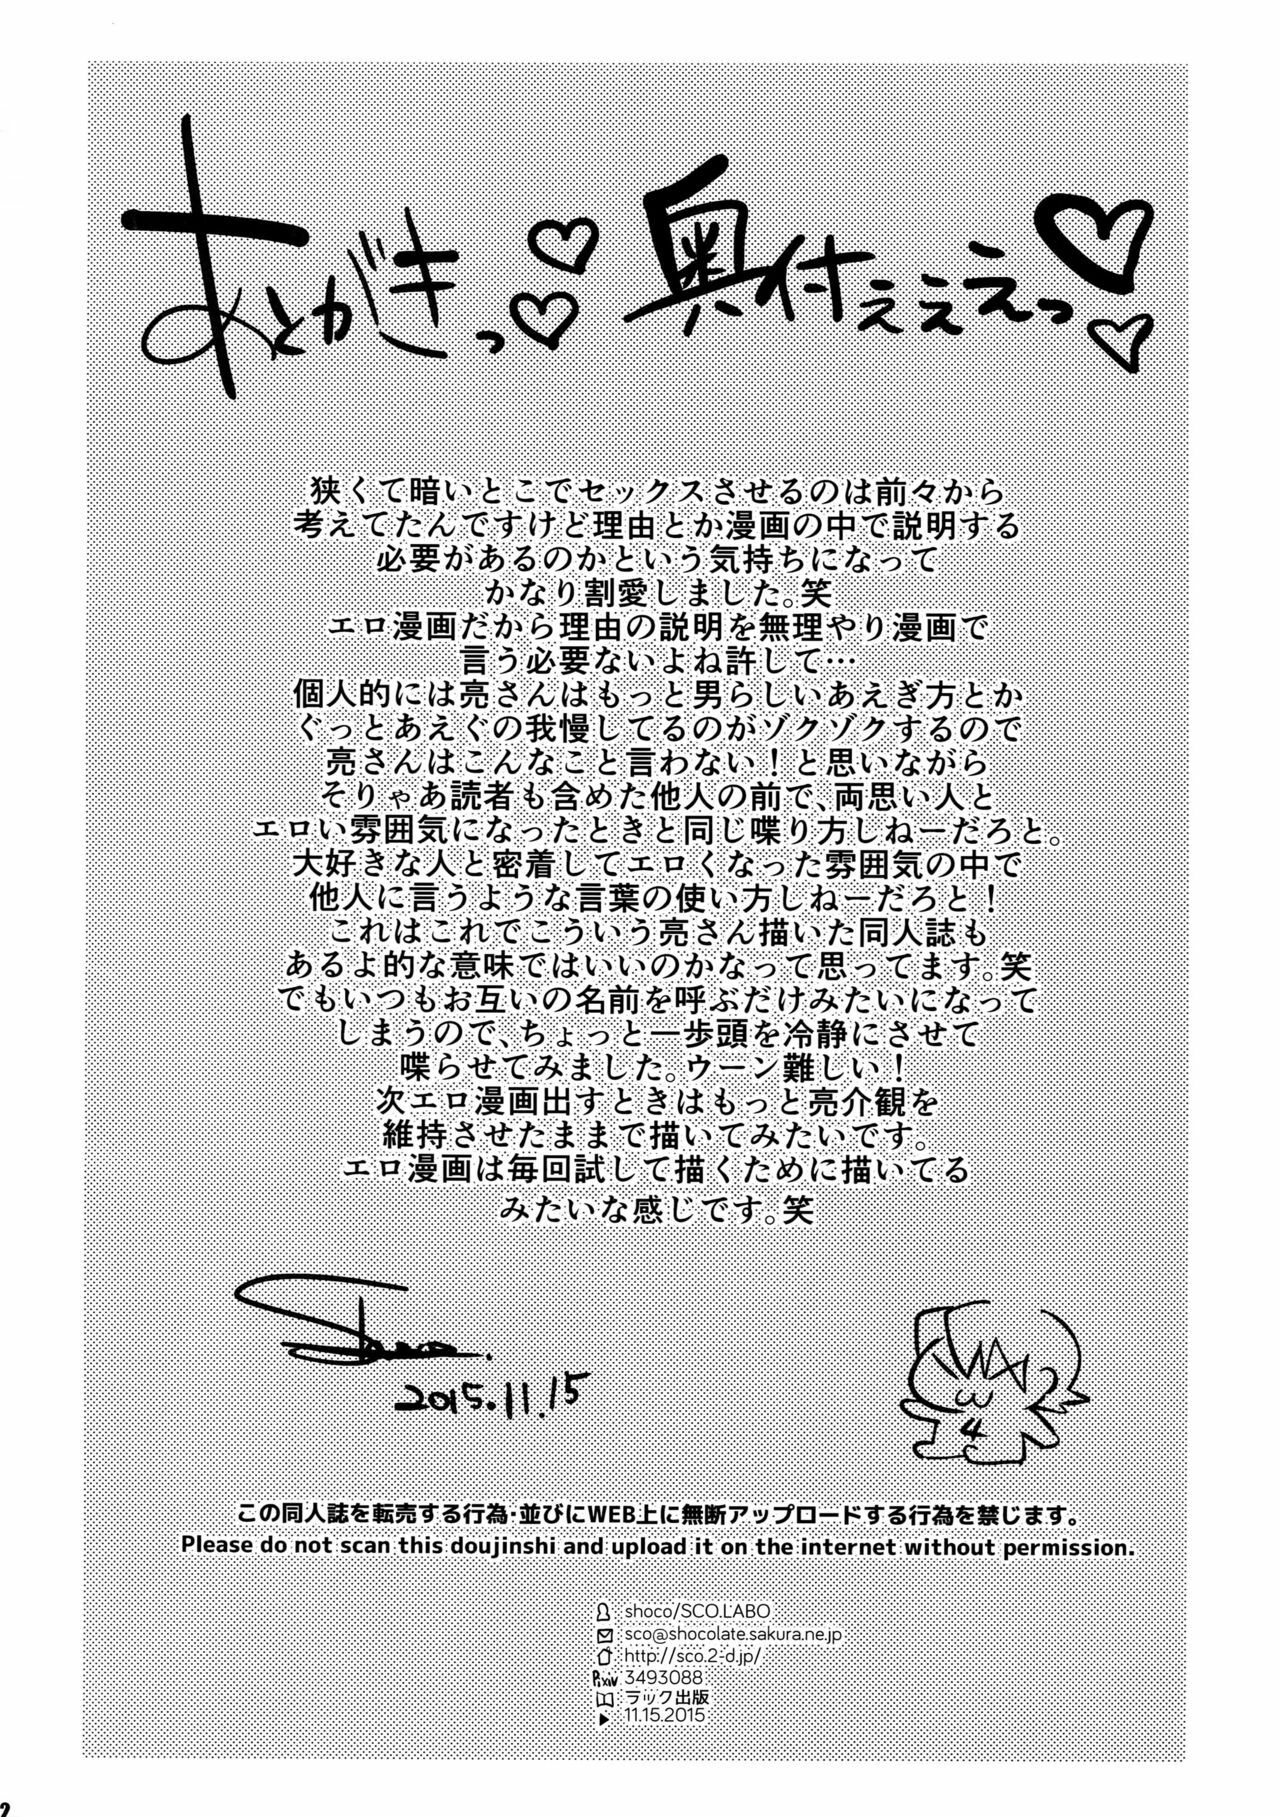 あとがきっ♡♡ 奥付ぇぇぇっ♡♡
狭くて暗いとこでセックスさせるのは前々から
考えてたんですけど理由とか漫画の中で説明する
必要があるのかという気持ちになって
かなり割愛しました。笑
エロ漫画だから理由の説明を無理やり漫画で
言う必要ないよね許して…
個人的には亮さんはもっと男らしいあえぎ方とか
ぐっとあえぐの我慢してるのがゾクゾクするので
亮さんはこんなこと言わない！と思いながら
そりゃあ読者も含めた他人の前で、両思い人と
エロい雰囲気になったときと同じ喋り方しねーだろと。
大好きな人と密着してエロくなった雰囲気の中で
他人に言うような言葉の使い方しねーだろと！
これはこれでこういう亮さん描いた同人誌も
あるよ的な意味ではいいのかなって思ってます。笑
でもいつもお互いの名前を呼ぶだけみたいになって
しまうので、ちょっと一歩頭を冷静にさせて
喋らせてみました。ウーン難しい！
次エロ漫画出すときはもっと亮介観を
維持させたままで描いてみたいです。
エロ漫画は毎回試して描くために描いてる
みたいな感じです。笑
2015.11.15
4
この同人誌を転売する行為・並びにWEB上に無断アップロードする行為を禁じます。
Please do not scan this doujinshi and upload it on the internet without permission.
shoco/SCO.LABO
sco@shocolate.sakura.ne.jp
http://sco.2-d.jp/
Pixiv 3493088
ラック出版
11.15.2015
2